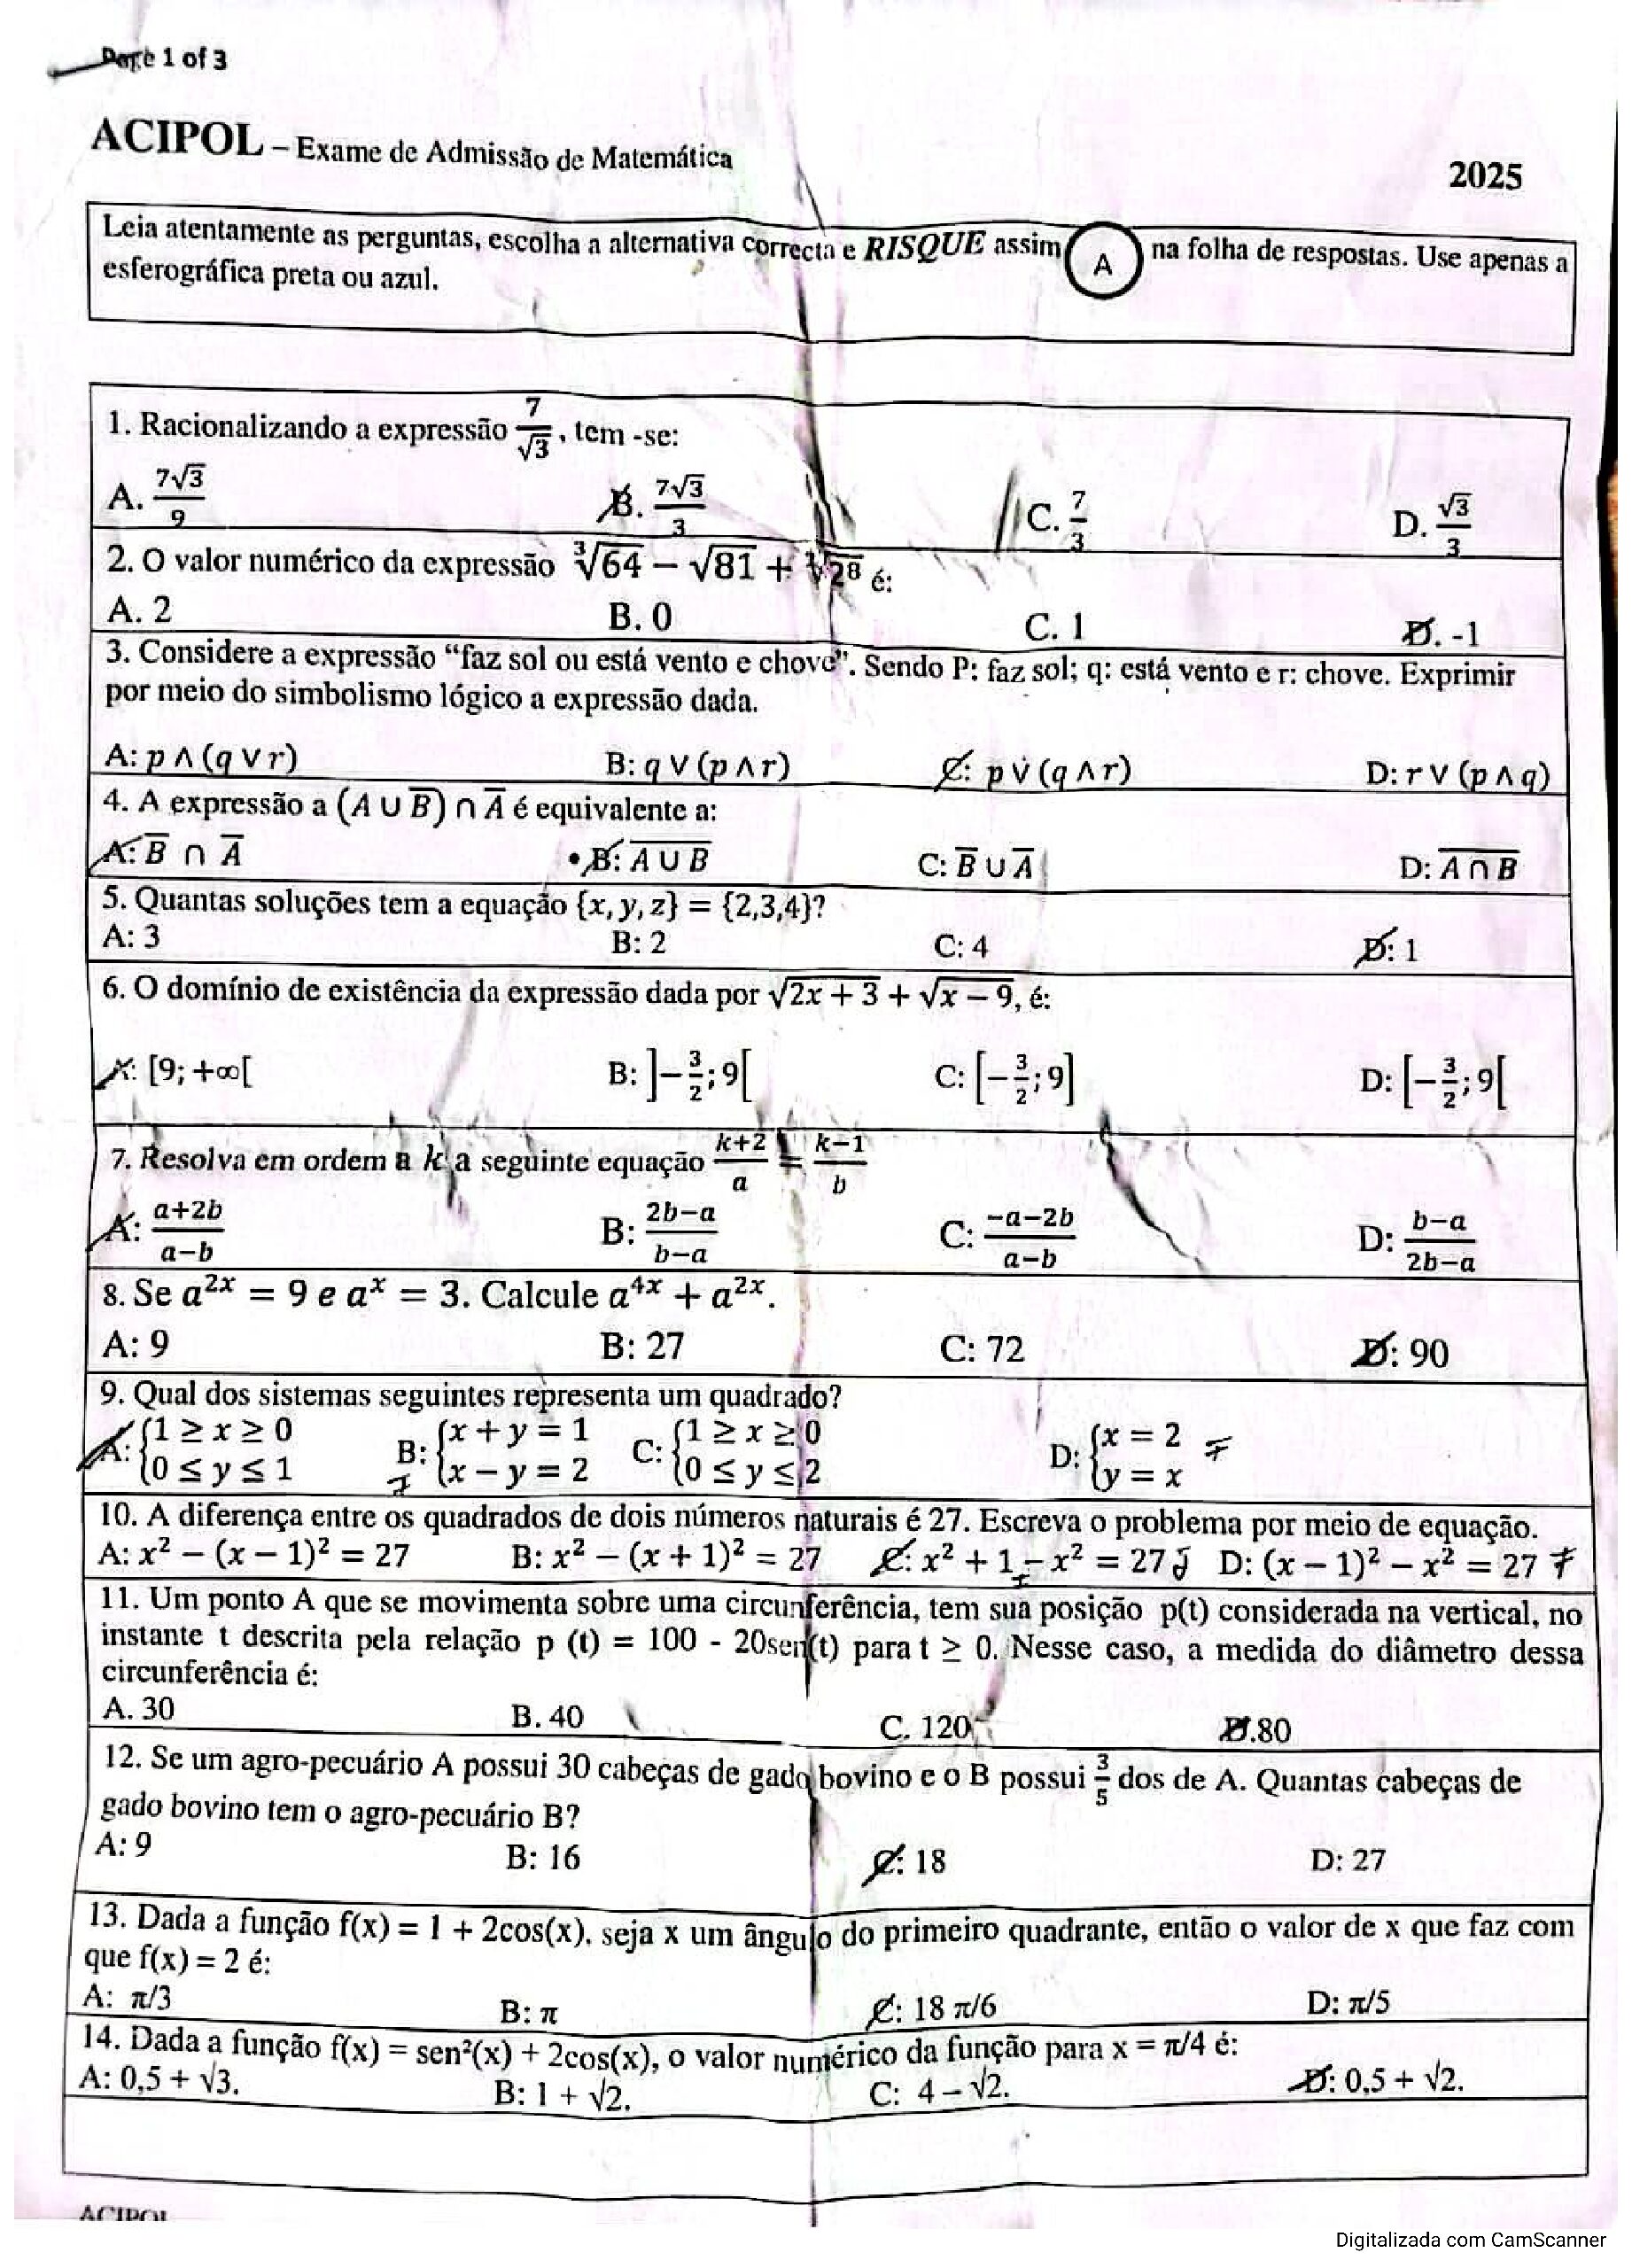 Page 1 of 3
ACIPOL – Exame de Admissão de Matemática
2025
Leia atentamente as perguntas, escolha a alternativa correcta e RISQUE assim A na folha de respostas. Use apenas a
esferográfica preta ou azul.
1. Racionalizando a expressão 7/√3, tem -se:
A. 7√3/9 B. 7√3/3 C. 7/3 D. √3/3
2. O valor numérico da expressão ∛64 − √81 + ∜2⁸ é:
A. 2 B. 0 C. 1 D. -1
3. Considere a expressão “faz sol ou está vento e chove”. Sendo P: faz sol; q: está vento e r: chove. Exprimir
por meio do simbolismo lógico a expressão dada.
A: p ∧ (q ∨ r) B: q ∨ (p ∧ r) C: p ∨ (q ∧ r) D: r ∨ (p ∧ q)
4. A expressão a (A ∪ B̅) ∩ A̅ é equivalente a:
A: B̅ ∩ A̅ B: A̅ ̅∪̅ ̅B̅ C: B̅ ∪ A̅ D: A̅ ̅∩̅ ̅B̅
5. Quantas soluções tem a equação {x, y, z} = {2,3,4}?
A: 3 B: 2 C: 4 D: 1
6. O domínio de existência da expressão dada por √(2x + 3) + √(x − 9), é:
A: [9; +∞[ B: ]−3/2; 9[ C: [−3/2; 9] D: [−3/2; 9[
7. Resolva em ordem a k a seguinte equação (k+2)/a = (k−1)/b
A: (a+2b)/(a−b) B: (2b−a)/(b−a) C: (−a−2b)/(a−b) D: (b−a)/(2b−a)
8. Se a²ˣ = 9 e aˣ = 3. Calcule a⁴ˣ + a²ˣ.
A: 9 B: 27 C: 72 D: 90
9. Qual dos sistemas seguintes representa um quadrado?
A: {1 ≥ x ≥ 0 B: {x + y = 1 C: {1 ≥ x ≥ 0 D: {x = 2
{0 ≤ y ≤ 1 {x − y = 2 {0 ≤ y ≤ 2 {y = x
10. A diferença entre os quadrados de dois números naturais é 27. Escreva o problema por meio de equação.
A: x² − (x − 1)² = 27 B: x² − (x + 1)² = 27 C: x² + 1 − x² = 27 D: (x − 1)² − x² = 27
11. Um ponto A que se movimenta sobre uma circunferência, tem sua posição p(t) considerada na vertical, no
instante t descrita pela relação p (t) = 100 - 20sen(t) para t ≥ 0. Nesse caso, a medida do diâmetro dessa
circunferência é:
A. 30 B. 40 C. 120 D.80
12. Se um agro-pecuário A possui 30 cabeças de gado bovino e o B possui 3/5 dos de A. Quantas cabeças de
gado bovino tem o agro-pecuário B?
A: 9 B: 16 C: 18 D: 27
13. Dada a função f(x) = 1 + 2cos(x), seja x um ângulo do primeiro quadrante, então o valor de x que faz com
que f(x) = 2 é:
A: π/3 B: π C: 18 π/6 D: π/5
14. Dada a função f(x) = sen²(x) + 2cos(x), o valor numérico da função para x = π/4 é:
A: 0,5 + √3. B: 1 + √2. C: 4 – √2. D: 0,5 + √2.
ACIPOL
Digitalizada com CamScanner